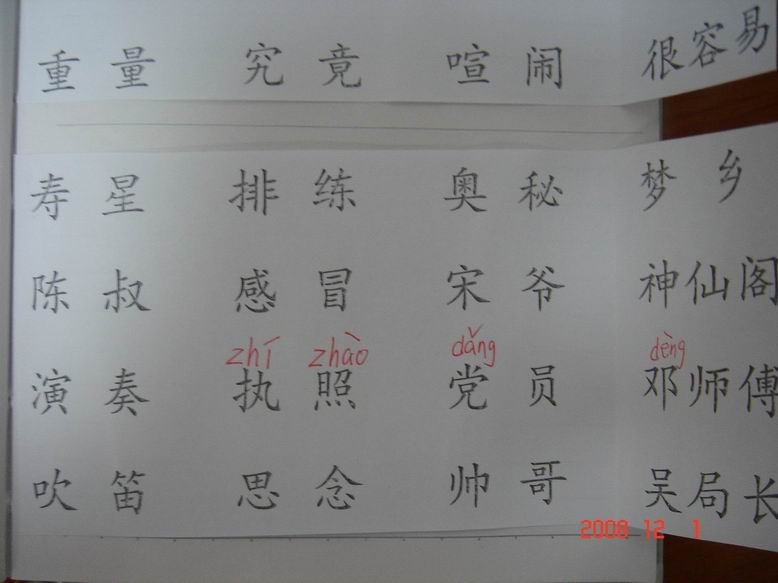 重量 究竟 喧闹 很容易
寿星 排练 奥秘 梦乡
陈叔 感冒 宋爷 神仙阁
zhí zhào dǎng dèng
演奏 执照 党员 邓师傅
吹笛 思念 帅哥 吴局长
2008 12 1